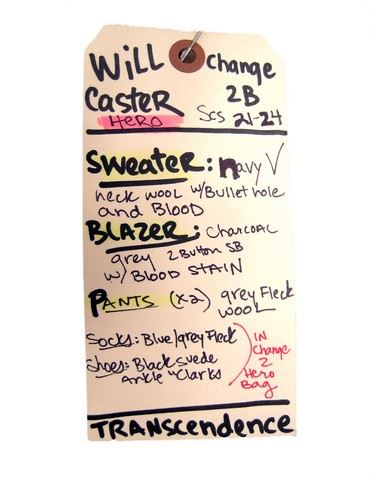 Will Change
Caster 2B
HERO Scs 21-24
Sweater: navy V
neck wool w/Bullet hole
and Blood
BLAZER: CHARCOAL
grey 2 Button SB
w/ BLOOD STAIN
PANTS (x2) grey Fleck
WOOL
Socks: Blue/grey Fleck
Shoes: Black suede
Ankle "Clarks
IN
Change
2
Hero
Bag
TRANSCENDENCE